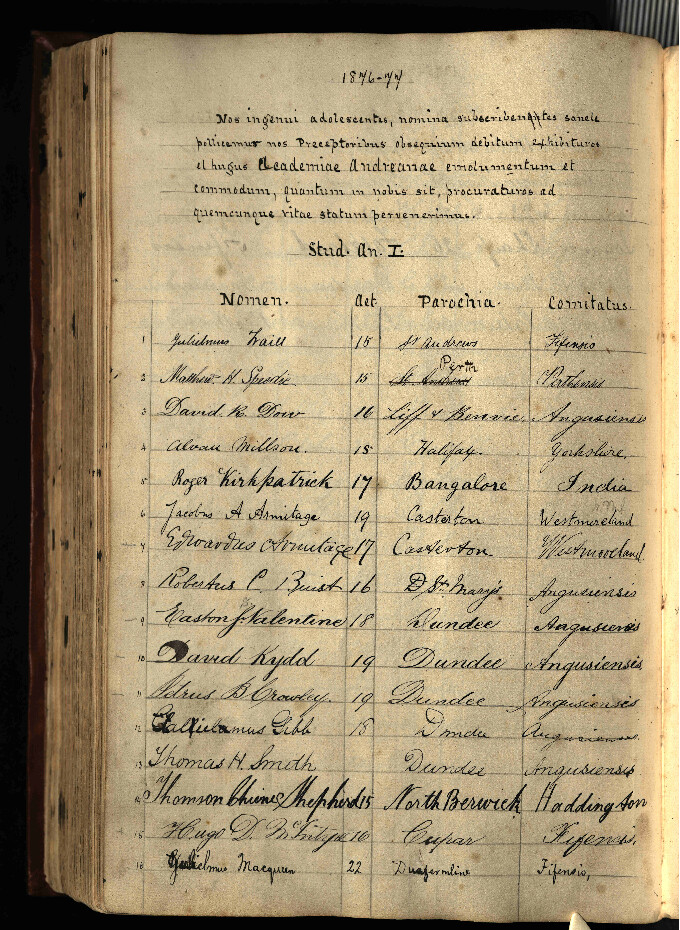 1876-77
Nos ingenui adolescentes, nomina subscribentes sancte
pollicemur nos Preceptoribus obsequium debitum exhibituros
et hujus Academiae Andreanae emolumentum et
commodum, quantum in nobis sit, procuraturos ad
quemcunque vitae statum pervenerimus.
Stud. An. I.
Nomen. Aet. Parochia. Comitatus.
1 Gulielmus Traill 15 St Andrews Fifensis
2 Matthew H. 15 St Andrews Perth Perthensis
3 David R. Dow 16 Liff & Benvie. Angusiensis
4 Alvan Millson. 18 Halifax. Yorkshire,
5 Roger Kirkpatrick 17 Bangalore India
6 Jacobus A Armitage 19 Casterton Westmoreland
7 Edwardus Armitage 17 Casterton. Westmoreland.
8 Robertus C. Buist 16 St. Mary's Angusiensis
9 Easton J. Valentine 18 Dundee Angusiensis
10 David Kydd 19 Dundee Angusiensis
11 B. Crowley. 19 Dundee Angusiensis
12 Gibb 18 Dundee Angusiensis
13 Thomas H. Smith Dundee Angusiensis
14 Thomson Shepherd 15 North Berwick Haddington
15 Hugo D. McIntyre 16 Cupar Fifensis,
16 Gulielmus Macqueen 22 Dunfermline Fifensis,